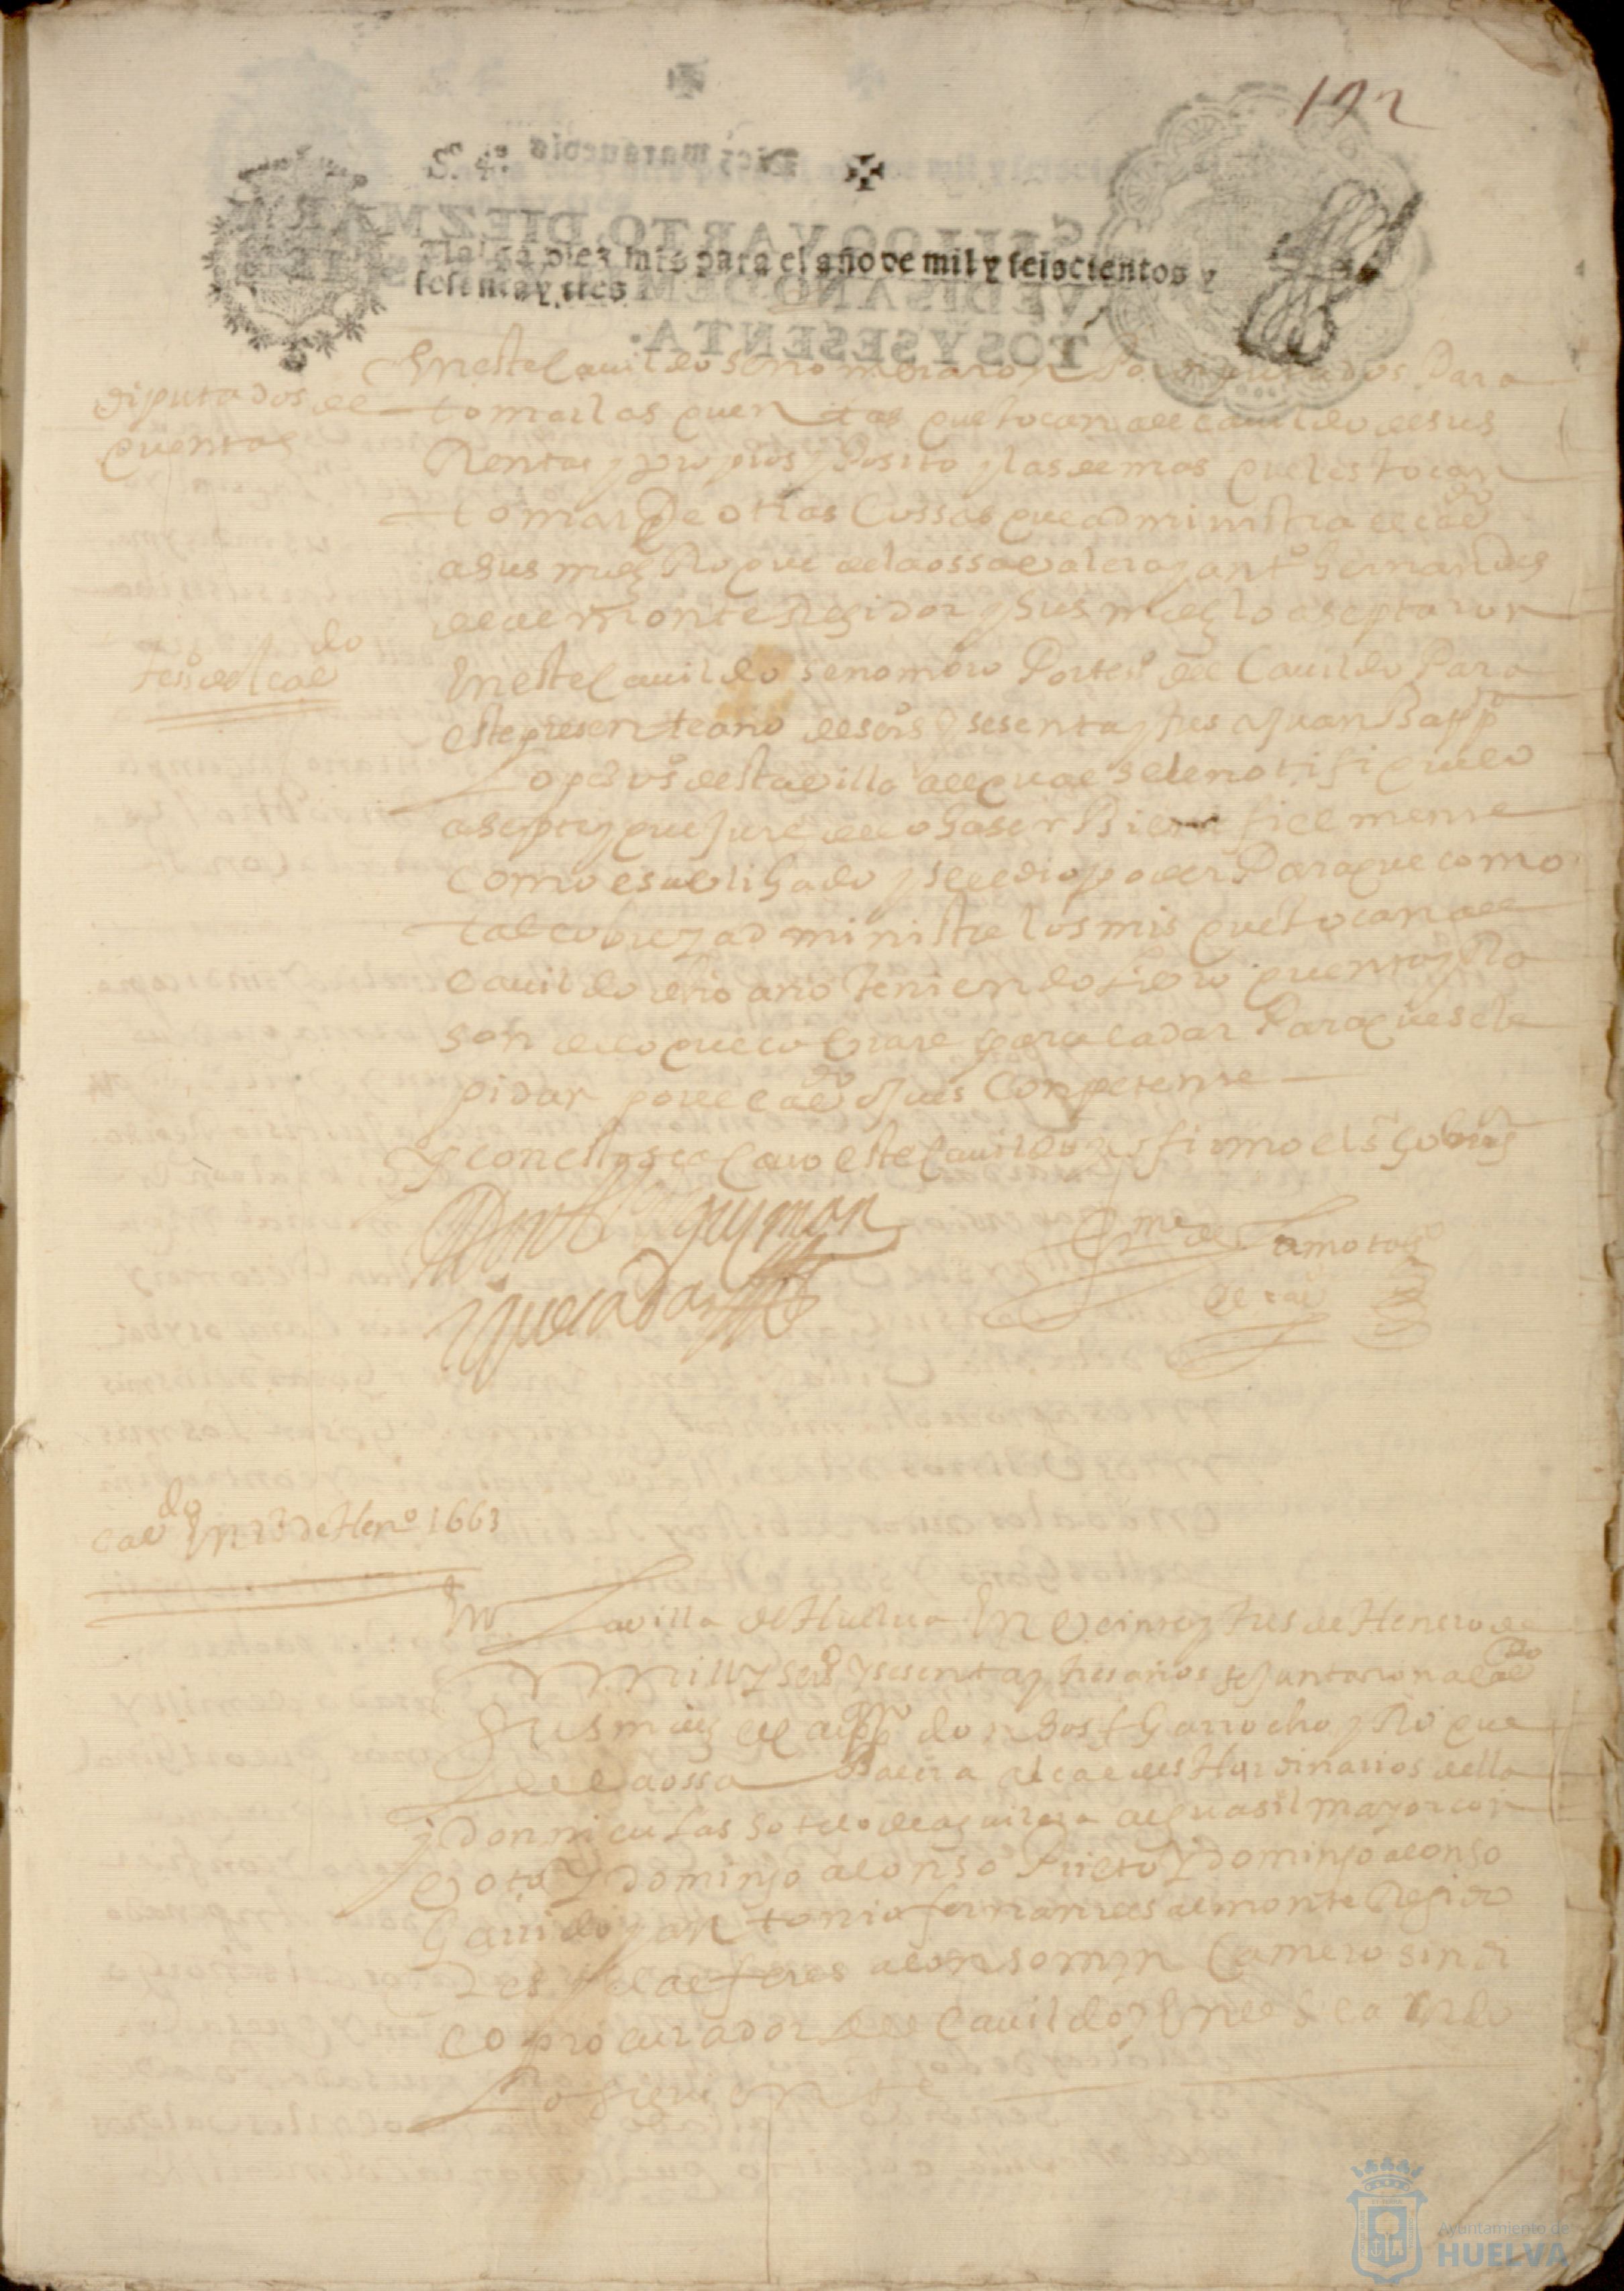 192
Valga diez mrs para el año de mil y seiscientos y
sesenta y tres
diputados de
quentas
En este Cauildo se nombraron Por diputados Para
tomar las quentas que tocan al cauildo de sus
Rentas y propios y Posito y las demas que les tocan
tomar De otras Cossas que administra el caudo
a sus mds Roque de la ossa balera y anto Hernandes
de almonte Regidor y sus mds lo aseptaron
teso del caudo
En este Cauildo se nombro Por teso del Cauildo Para
este presente año de seiso sesenta y tres a Juan Bapta
Lopes vo desta villa al qual se le notifique lo
asepte y que Jure de lo haser Bien fielmente
como es obligado y se le dio poder Para que como
tal cobre y administre los mrs que tocan al
cauildo dho año teniendo libro quenta y Ra
son de lo que cobrare para la dar Para que se le
pidan por el caudo o Jues Conpetente
Y con esto se acauo este Cauildo y lo firmo el sr Gobor
guzman
quesada
de la mota
del cauo
Caudo En 23 de Heno 1663
En La villa de Huelua En Veinte y tres de Henero de
mill y seiso y sesenta y tres años se Juntaron a caudo
Sus mds el don Garrocho y Roque
de la ossa Balera alcaldes Hordinarios della
y don niculas sotelo de aguilera alguasil mayor con
Voto y domingo alonso Prieto y domingo alonso
Garrido y antonio fernandes almonte Regido
res y el alferes alonso min Camero sindi
co procurador del Cauildo y En el se acordo
Lo siguiente
Ayuntamiento de
HUELVA